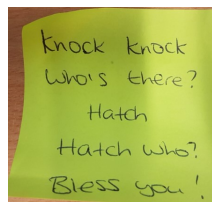 Knock knock
Who's there?
Hatch
Hatch who?
Bless you!